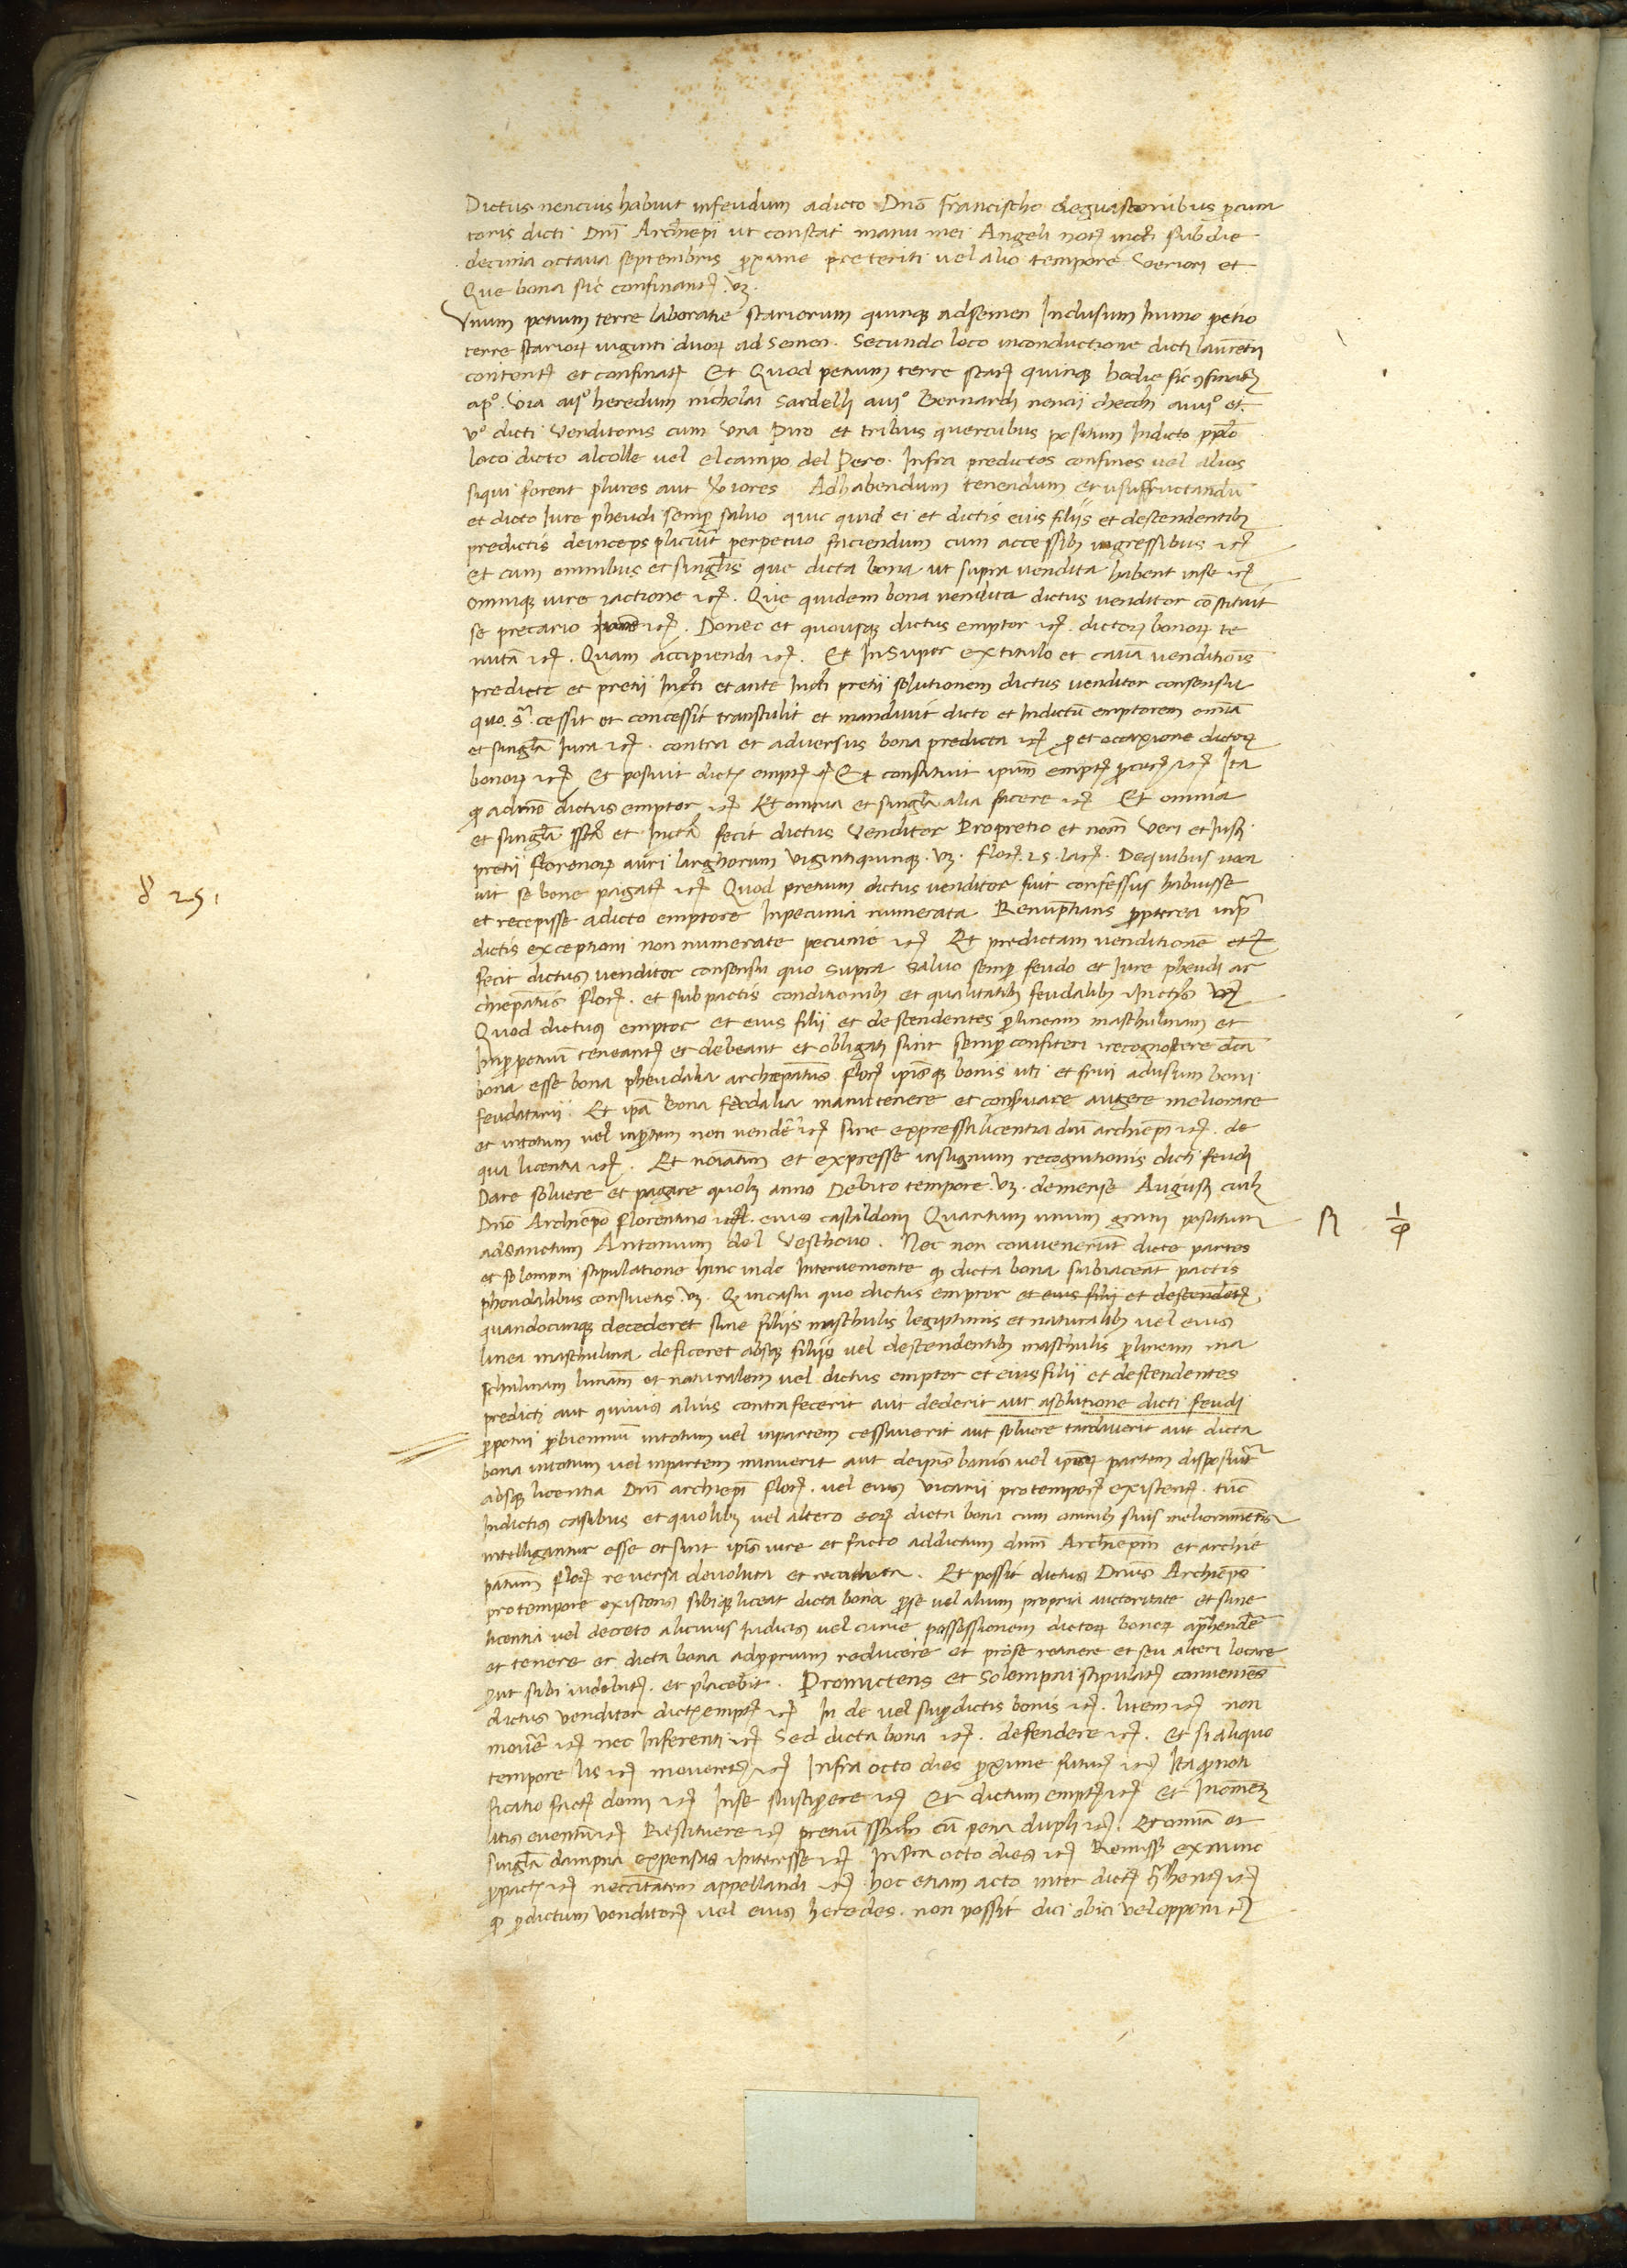 Dictus nencius habuit infeudum adicto Dno francischo deguasconibus procura
toris dicti Dni Archiepi ut constat manu mei Angeli not infti sub die
decima octava septembris proxime preteriti vel alio tempore veriori et
Que bona sic confinant vz.
Unum petium terre laboratie stariorum quinq adsemen Inclusum Inuno petio
terre starior viginti duor ad semen. Secundo loco inconductione dicti laurentii
content et confinat Et Quod petium terre star quinq hodie sic confinat
a po. via a ijo heredum nicholai Sardelli a iijo Bernardi nencii checchi a iiijo et
vo dicti venditoris cum una Piro et tribus quercubus positum Indicto pplo
loco dicto alcolle vel elcampo del Pero. Infra predictos confines vel alios
siqui forent plures aut veriores Adhabendum tenendum et usuffructandu
et dicto Iure pheudi semp salvo quic quid ei et dictis eius filiis et descendentib
predictis deinceps placuit perpetuo faciendum cum accessib ingressibus etc
et cum omnibus et singlis que dicta bona ut supra vendita habent inse etc
omniq iure et actione etc. Que quidem bona vendita dictus venditor constituit
se precario etc. Donec et quousq dictus emptor etc. dictor bonor te
nuta etc. Quam accipiendi etc. Et Insuper extitulo et causa venditionis
predicte et pretii Infti et ante Infti pretii solutionem dictus venditor consensu
quo sa. cessit et concessit transtulit et mandavit dicto et Indictu emptorem omia
et singla Iura etc. contra et adversus bona predicta etc pro et occaxione dictor
bonor etc Et posuit dict empt Et constituit ipum empt procur etc Ita
q admo dictus emptor etc Et omnia et singla alia facere etc Et omnia
et singla ssta et Infta fecit dictus Venditor Propretio et noie Veri et Iusti
pretii florenor auri larghorum vigintiquinq. vz. flor. 25. lar. Dequibus voca
vit se bene pagat etc Quod pretium dictus venditor fuit confessus habuisse
et recepisse adicto emptore Inpecunia numerata Renuptians propterea inpre
dictis exceptioni non numerate pecunie etc Et predictam venditione etc
fecit dictus venditor consensu quo supra salvo semp feudo et Iure pheudi ar
chiepatus flor. et subpactis conditionib et qualitatib feudalib Inftis vz
Quod dictus emptor et eius filii et descendentes plineam maschulinam et
Imperpetuu teneant et debeant et obligati sint semp confiteri recognoscere dca
bona esse bona pheudalia archiepatus flor ipisq bonis uti et frui adusum boni
feudatarii. Et ipa bona feodalia manutenere et conservare augere meliorare
et intotum vel inpartem non vende etc sine expressa licentia dni archiepi etc. de
qua licentia etc. Et noiatim et expresse insignum recognitionis dicti feudi
Dare solvere et pagare quolz anno Debito tempore. vz. demense Augusti cuilz
Dno Archiepo florentino eius castaldoni Quartum unum grani positum
adsanctum Antonium del Veschovo. Nec non convenerunt dicte partes
et solempni stipulatione hinc inde Interveniente q dicta bona subiaceat pactis
pheudalibus consuetis. vz. Q incasu quo dictus emptor et eius filii et descendentes
quandocunq decederet sine filiis maschulis legiptimis et naturalib vel eius
linea maschulina deficeret absq filiis vel descendentib maschulis plineam ma
schulinam et naturalem vel dictus emptor et eius filii et descendentes
predicti aut quivis alius contrafecerit aut dederit aut asolutione dicti feudi
ppetui pbienniu intotum vel inpartem cessaverit aut solvere tardaverit aut dicta
bona intotum vel inpartem minuerit aut deipis bonis vel ipor partem disposuerit
absq licentia Dni archiepi flor. vel eius vicarii pro tempore existent. tuc
Indictis casibus et quolibz vel altero eor dicta bona cum omnib suis melioramentis
intelligantur esse et sint ipis iure et facto addictum dnm Archiepm et archie
patum flor reversa devoluta et recaduta. Et possit dictus Dnus Archieps
protempore existens sibiq liceat dicta bona pse vel alium propria auctoritate et sine
licentia vel decreto alicuius Iudicis vel curie possessionem dictor bonor aprehende
et tenere et dicta bona adpprium reducere et prose retinere et seu alteri locare
prout sibi videbit. et placebit. Promictens et Solempni stipulat conveniens
dictus venditor dict empt etc In de vel supdictis bonis etc. litem etc non
movere etc nec Inferenti etc Sed dicta bona etc. defendere etc. Et si aliquo
tempore lis etc moveret etc Infra octo dies proxime futur etc Ita q noti
ficatio fact domi etc Inse suscipere etc Et dictum empt etc et Inomnem
litis eventu etc Restituere etc pretiu sstum cu pena dupli etc. Et omia et
singla dampna expensas Interesse etc Infra octo dies etc Remiss exnunc
ppact etc neccitatem appellandi etc hoc etiam acto inter dict etc
q pdictum venditor vel eius heredes. non possit dici obici vel opponi etc
25